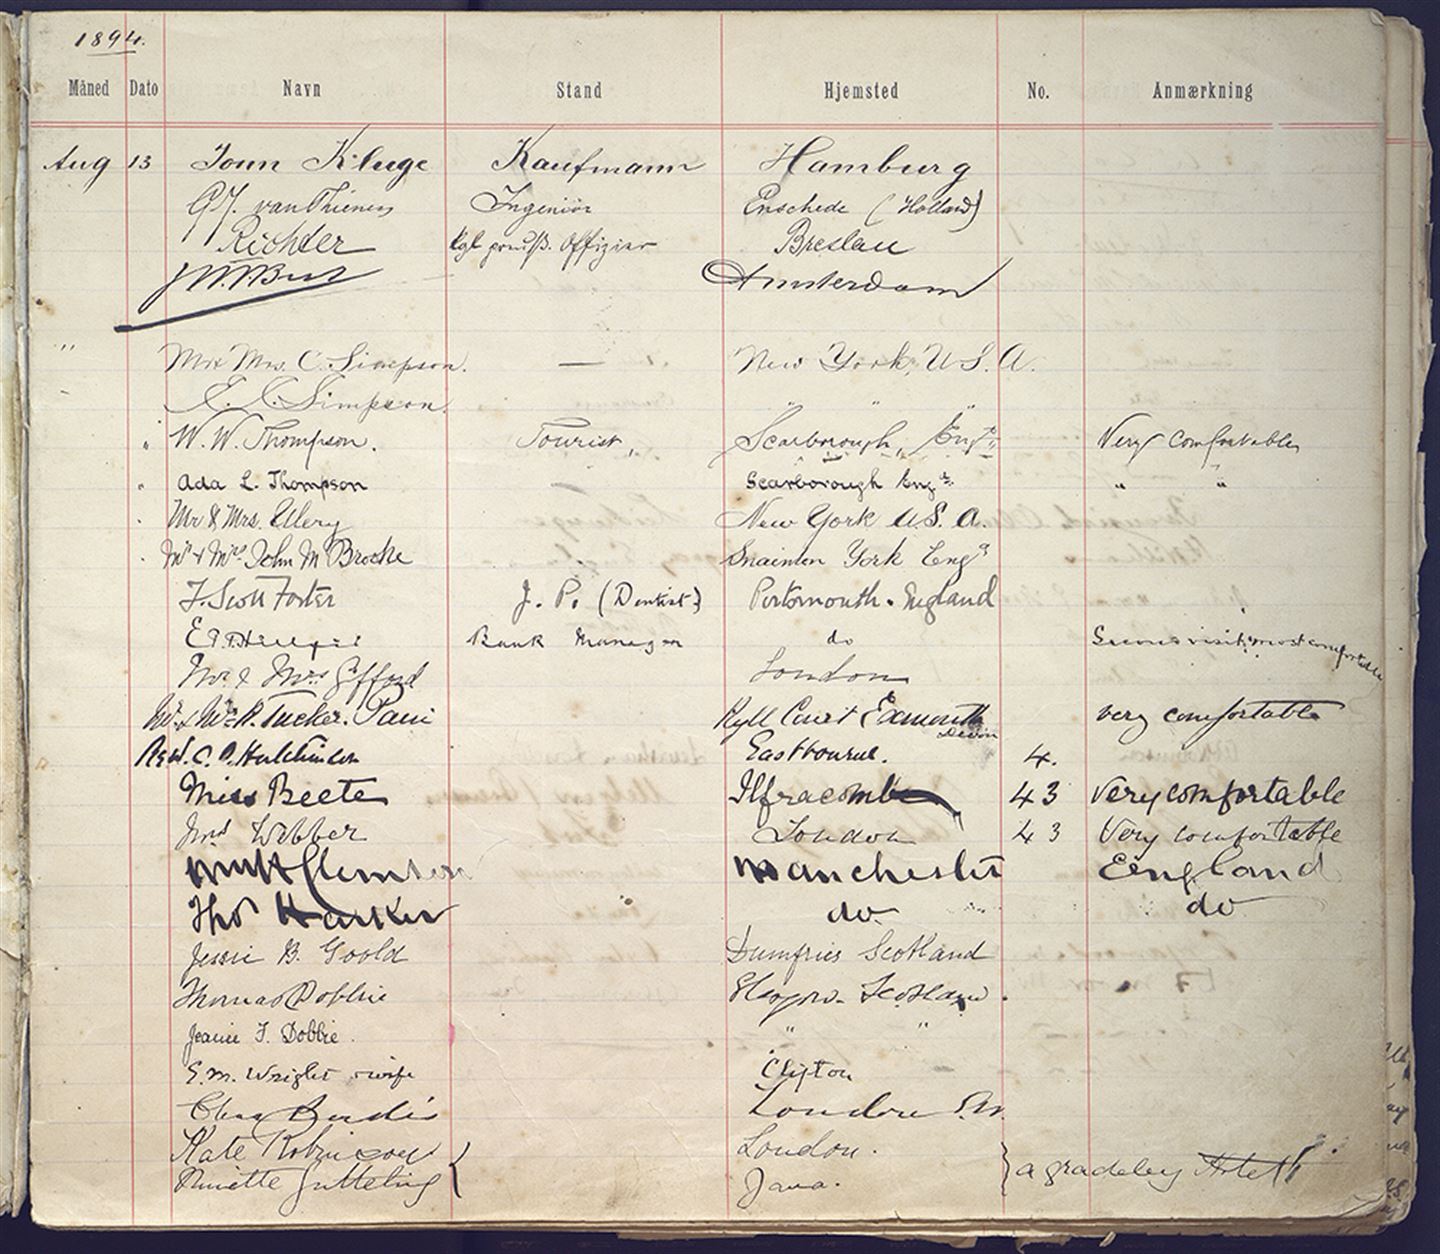 1894.
Måned Dato Navn Stand Hjemsted No. Anmærkning
Aug 13 Kluge Kaufmann Hamburg
van Thienen Ingeniör Enschede (Holland)
Richter Kgl preuß. Offizier Breslau
Amsterdam
" Mr & Mrs. C. Simpson. — New York, U.S.A.
Simpson. " " "
" W. W. Thompson. Tourist, Scarborough, Engd. Very comfortable
" Ada L. Thompson — Scarborough Engd. " "
" Mr & Mrs. Ulery New York U.S.A.
" Mr & Mrs John M Brooke York Engd
J. Scott Foster J. P. (Dentist) Portsmouth. England
Bank Manager do Second visit, most comfortable
Mr. & Mrs Gifford London
Mr. & Mrs R. Tucker. Pain Ryll Court Exmouth Devon very comfortable
Revd. C. Hutchinson Eastbourne. 4.
Miss Beete Ilfracombe 43 Very comfortable
Mrs Webber London 43 Very comfortable
Manchester England
Thos Harker do. do
Jessie B. Goold Dumfries Scotland
Thomas Dobbie Glasgow. Scotland.
Jeanie T. Dobbie. " "
E. M. Wright & wife Clifton
Chas London
Kate Robinson London.
Ninette Gutteling Java. a gradeley